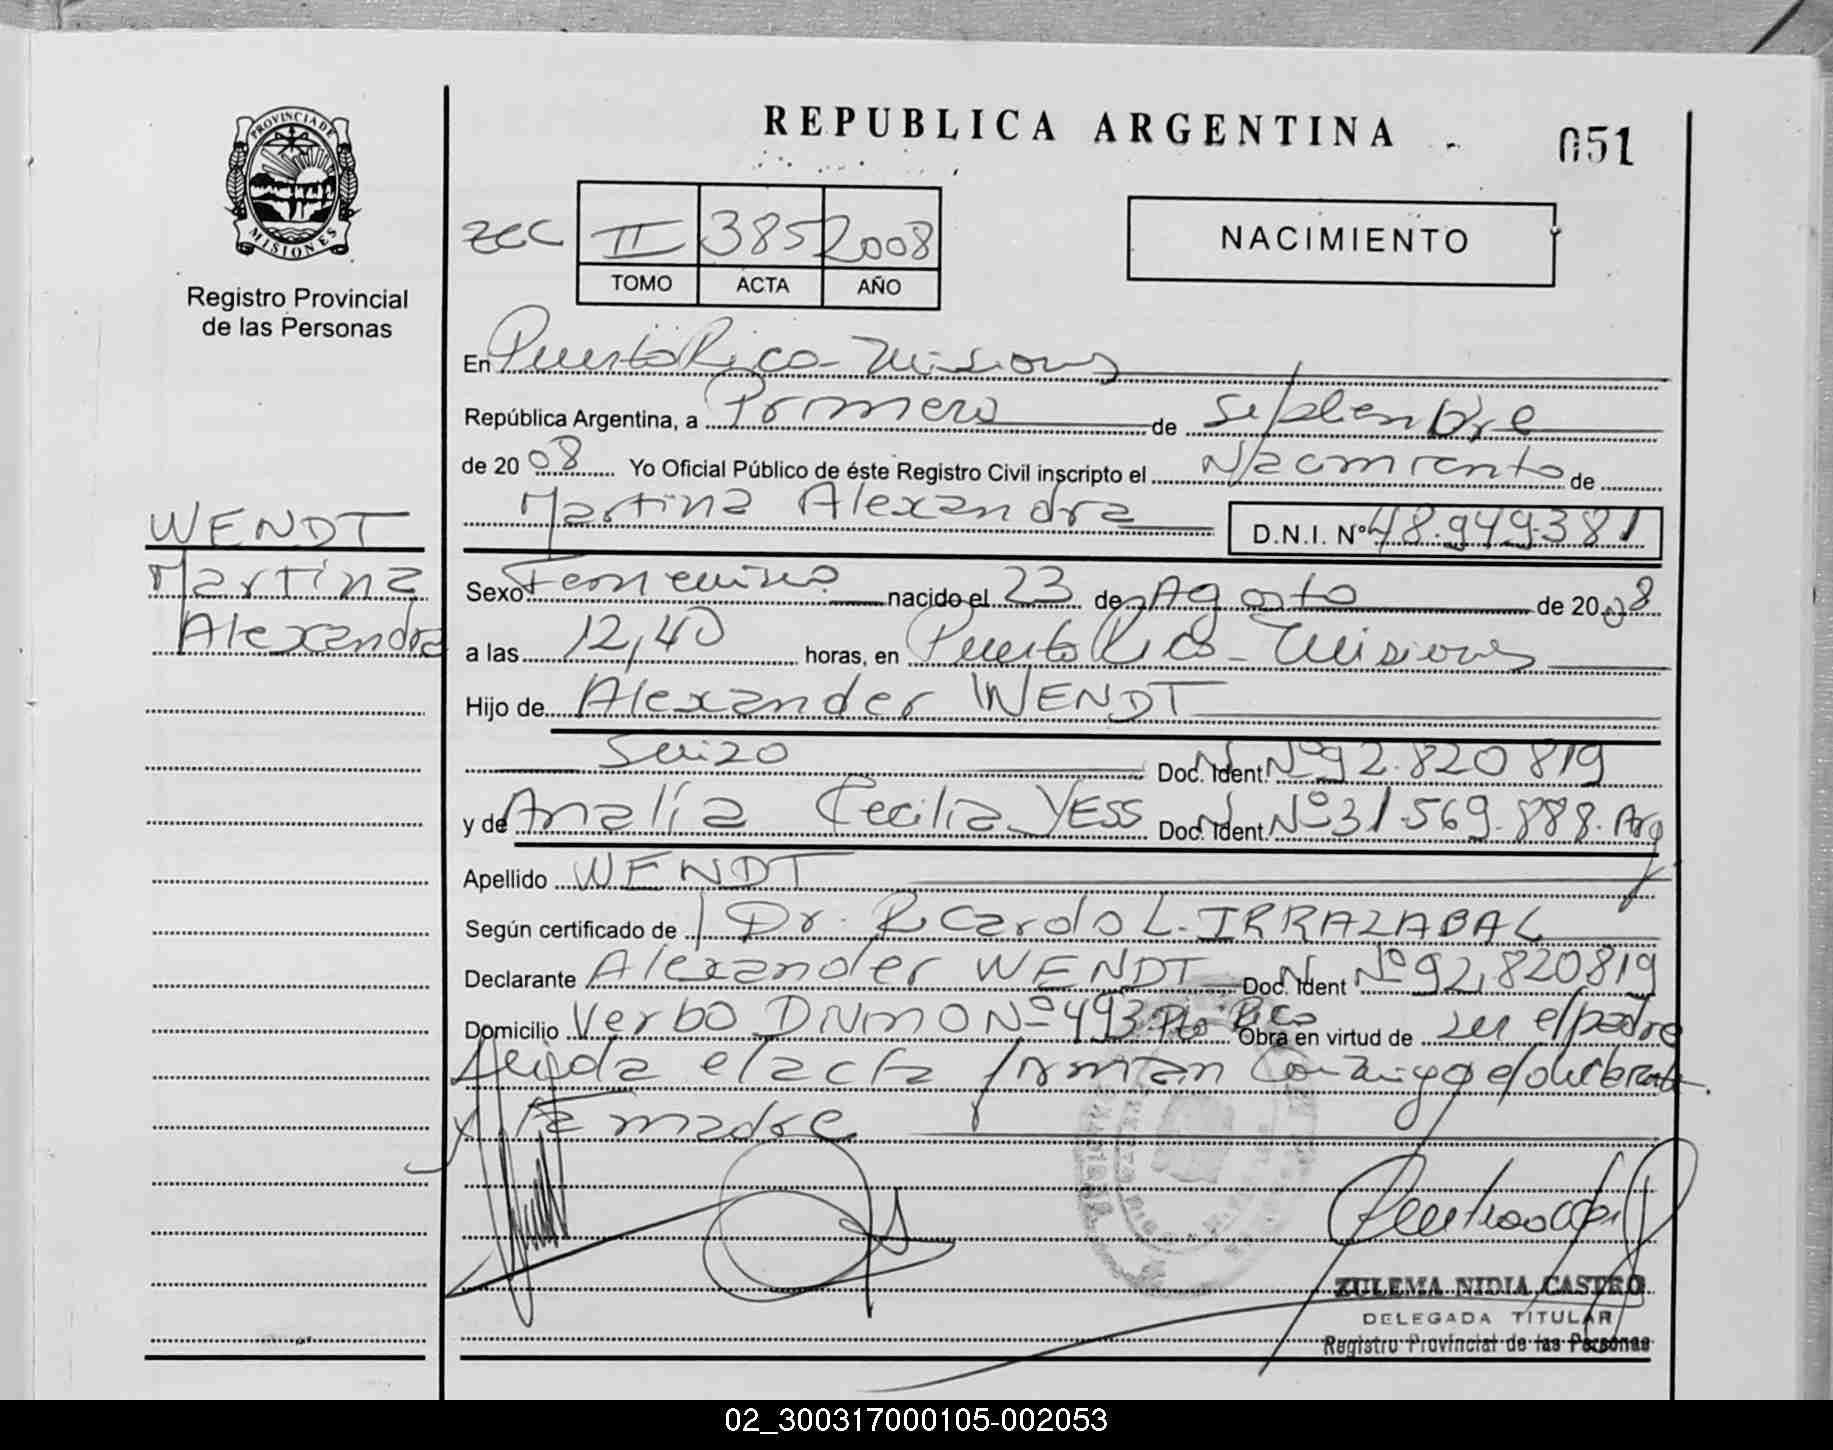 REPUBLICA ARGENTINA
051
PROVINCIA DE
MISIONES
Registro Provincial
de las Personas
II 385 2008
TOMO ACTA AÑO
NACIMIENTO
En Puerto Rico - Misiones
República Argentina, a Primero de Septiembre
de 2008 Yo Oficial Público de éste Registro Civil inscripto el Nacimiento de
Martina Alexandra D.N.I. Nº 48.949.381
WENDT
Martina
Alexandra
Sexo Femenino nacido el 23 de Agosto de 2008
a las 12,40 horas, en Puerto Rico - Misiones
Hijo de Alexander WENDT
Suizo Doc. Ident. Nº 92.820819
y de Analía Cecilia YESS Doc. Ident. Nº 31.569.888. Arg
Apellido WENDT
Según certificado de Dr. Ricardo L. IRRAZABAL
Declarante Alexander WENDT Doc. Ident Nº 92,820819
Domicilio Verbo DIVINO Nº 493 Pto Rico Obra en virtud de ser el padre
Leída el acta firman conmigo el declarante
y la madre
ZULEMA NIDIA CASTRO
DELEGADA TITULAR
Registro Provincial de las Personas
02_300317000105-002053